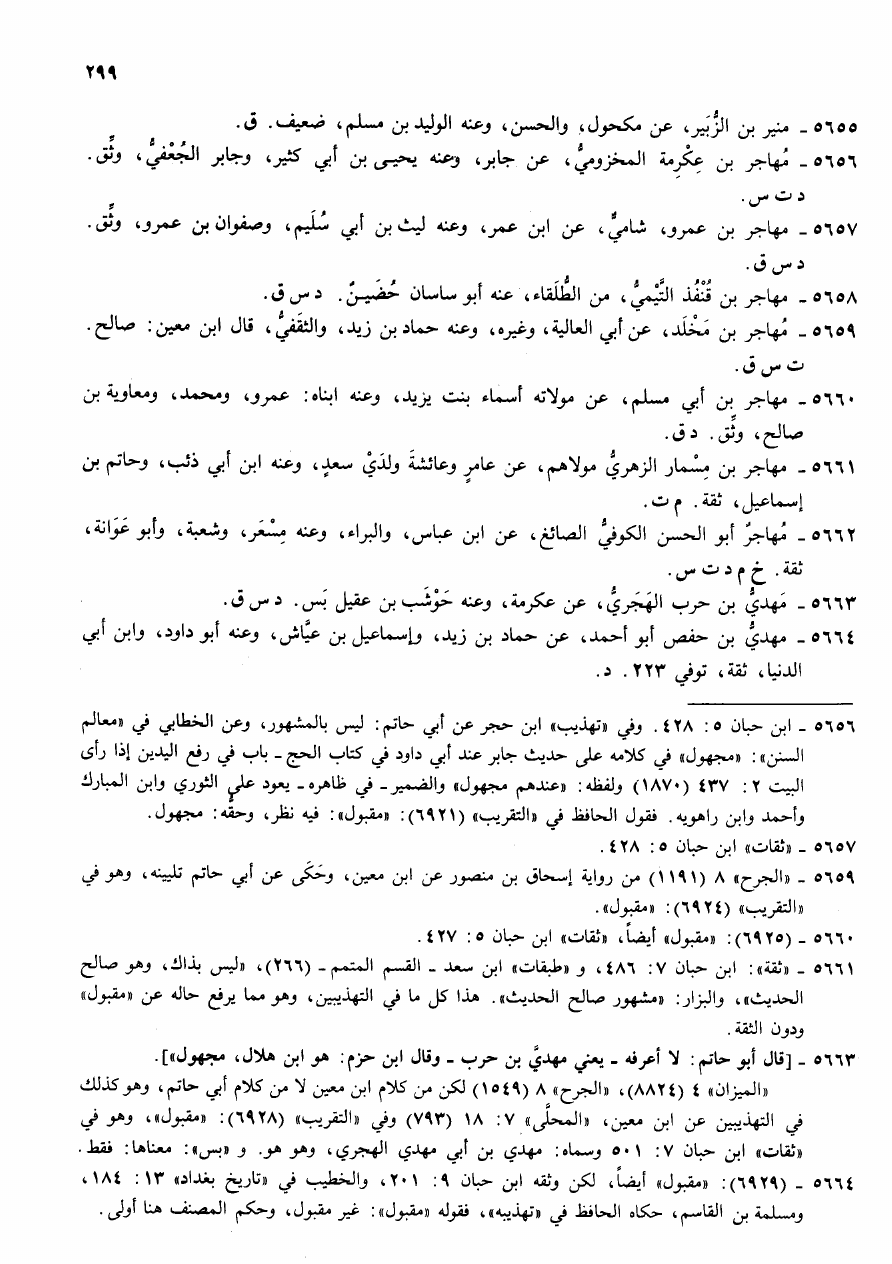 ٢٩٩
٥٦٥٥ - منير بن الزُّبَير، عن مكحول، والحسن، وعنه الوليد بن مسلم، ضعيف. ق.
٥٦٥٦ - مُهاجر بن عِكْرِمة المخزوميُّ، عن جابر، وعنه يحيى بن أبي كثير، وجابر الجُعْفيُّ، وثِّق.
د ت س.
٥٦٥٧ - مهاجر بن عمرو، شاميٌّ، عن ابن عمر، وعنه ليث بن أبي سُلَيم، وصفوان بن عمرو، وثِّق.
د س ق.
٥٦٥٨ - مهاجر بن قُنْفُذ التَّيْميُّ، من الطُّلَقاء، عنه أبو ساسان حُضَيـنٌ. د س ق.
٥٦٥٩ - مُهاجر بن مَخْلَد، عن أبي العالية، وغيره، وعنه حماد بن زيد، والثقَفيُّ، قال ابن معين: صالح.
ت س ق.
٥٦٦٠ - مهاجر بن أبي مسلم، عن مولاته أسماء بنت يزيد، وعنه ابناه: عمرو، ومحمد، ومعاوية بن
صالح، وثِّق. د ق.
٥٦٦١ - مهاجر بن مِسْمار الزهريُّ مولاهم، عن عامرٍ وعائشةَ ولدَيْ سعدٍ، وعنه ابن أبي ذئب، وحاتم بن
إسماعيل، ثقة. م ت.
٥٦٦٢ - مُهاجرٌ أبو الحسن الكوفيُّ الصائغ، عن ابن عباس، والبراء، وعنه مِسْعَر، وشعبة، وأبو عَوَانة،
ثقة. خ م د ت س.
٥٦٦٣ - مَهديُّ بن حرب الهَجَريُّ، عن عكرمة، وعنه حَوْشَب بن عقيل بَس. د س ق.
٥٦٦٤ - مهديُّ بن حفص أبو أحمد، عن حماد بن زيد، وإسماعيل بن عيَّاش، وعنه أبو داود، وابن أبي
الدنيا، ثقة، توفي ٢٢٣. د.
٥٦٥٦ - ابن حبان ٥: ٤٢٨. وفي «تهذيب» ابن حجر عن أبي حاتم: ليس بالمشهور، وعن الخطابي في «معالم
السنن»: «مجهول» في كلامه على حديث جابر عند أبي داود في كتاب الحج - باب في رفع اليدين إذا رأى
البيت ٢: ٤٣٧ (١٨٧٠) ولفظه: «عندهم مجهول» والضمير - في ظاهره - يعود على الثوري وابن المبارك
وأحمد وابن راهويه. فقول الحافظ في «التقريب» (٦٩٢١): «مقبول»: فيه نظر، وحقُّه: مجهول.
٥٦٥٧ - «ثقات» ابن حبان ٥: ٤٢٨.
٥٦٥٩ - «الجرح» ٨ (١١٩١) من رواية إسحاق بن منصور عن ابن معين، وحَكَى عن أبي حاتم تليينه، وهو في
«التقريب» (٦٩٢٤): «مقبول».
٥٦٦٠ - (٦٩٢٥): «مقبول» أيضاً، «ثقات» ابن حبان ٥: ٤٢٧.
٥٦٦١ - «ثقة»: ابن حبان ٧: ٤٨٦، و «طبقات» ابن سعد - القسم المتمم - (٢٦٦)، «ليس بذاك، وهو صالح
الحديث»، والبزار: «مشهور صالح الحديث». هذا كل ما في التهذيبين، وهو مما يرفع حاله عن «مقبول»
ودون الثقة.
٥٦٦٣ - [قال أبو حاتم: لا أعرفه - يعني مهديَّ بن حرب - وقال ابن حزم: هو ابن هلال، مجهول»].
«الميزان» ٤ (٨٨٢٤)، «الجرح» ٨ (١٥٤٩) لكن من كلام ابن معين لا من كلام أبي حاتم، وهو كذلك
في التهذيبين عن ابن معين، «المحلَّى» ٧: ١٨ (٧٩٣) وفي «التقريب» (٦٩٢٨): «مقبول»، وهو في
«ثقات» ابن حبان ٧: ٥٠١ وسماه: مهدي بن أبي مهدي الهجري، وهو هو. و «بس»: معناها: فقط.
٥٦٦٤ - (٦٩٢٩): «مقبول» أيضاً، لكن وثقه ابن حبان ٩: ٢٠١، والخطيب في «تاريخ بغداد» ١٣: ١٨٤،
ومسلمة بن القاسم، حكاه الحافظ في «تهذيبه»، فقوله «مقبول»: غير مقبول، وحكم المصنف هنا أولى.